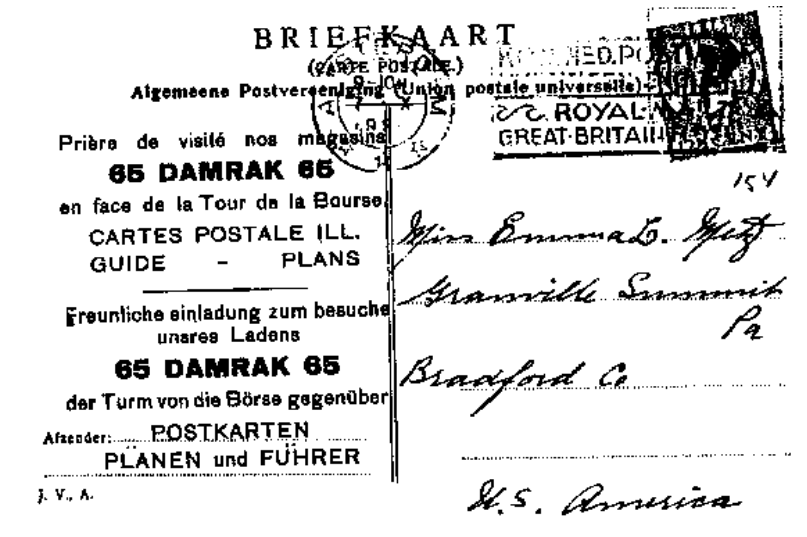 BRIEFKAART
(CARTE POSTALE.)
Algemeene Postvereeniging (Union postale universelle)
ROYAL
GREAT-BRITAIN
Prière de visité nos magasins
65 DAMRAK 65
en face de la Tour de la Bourse
CARTES POSTALE ILL.
GUIDE - PLANS
Freunliche einladung zum besuche
unsres Ladens
65 DAMRAK 65
der Turm von die Börse gegenüber
Afzender: POSTKARTEN
PLÄNEN und FÜHRER
J. V., A.
154
Miss Emma L. Metz
Granville Summit
Pa
Bradford Co
U.S. America